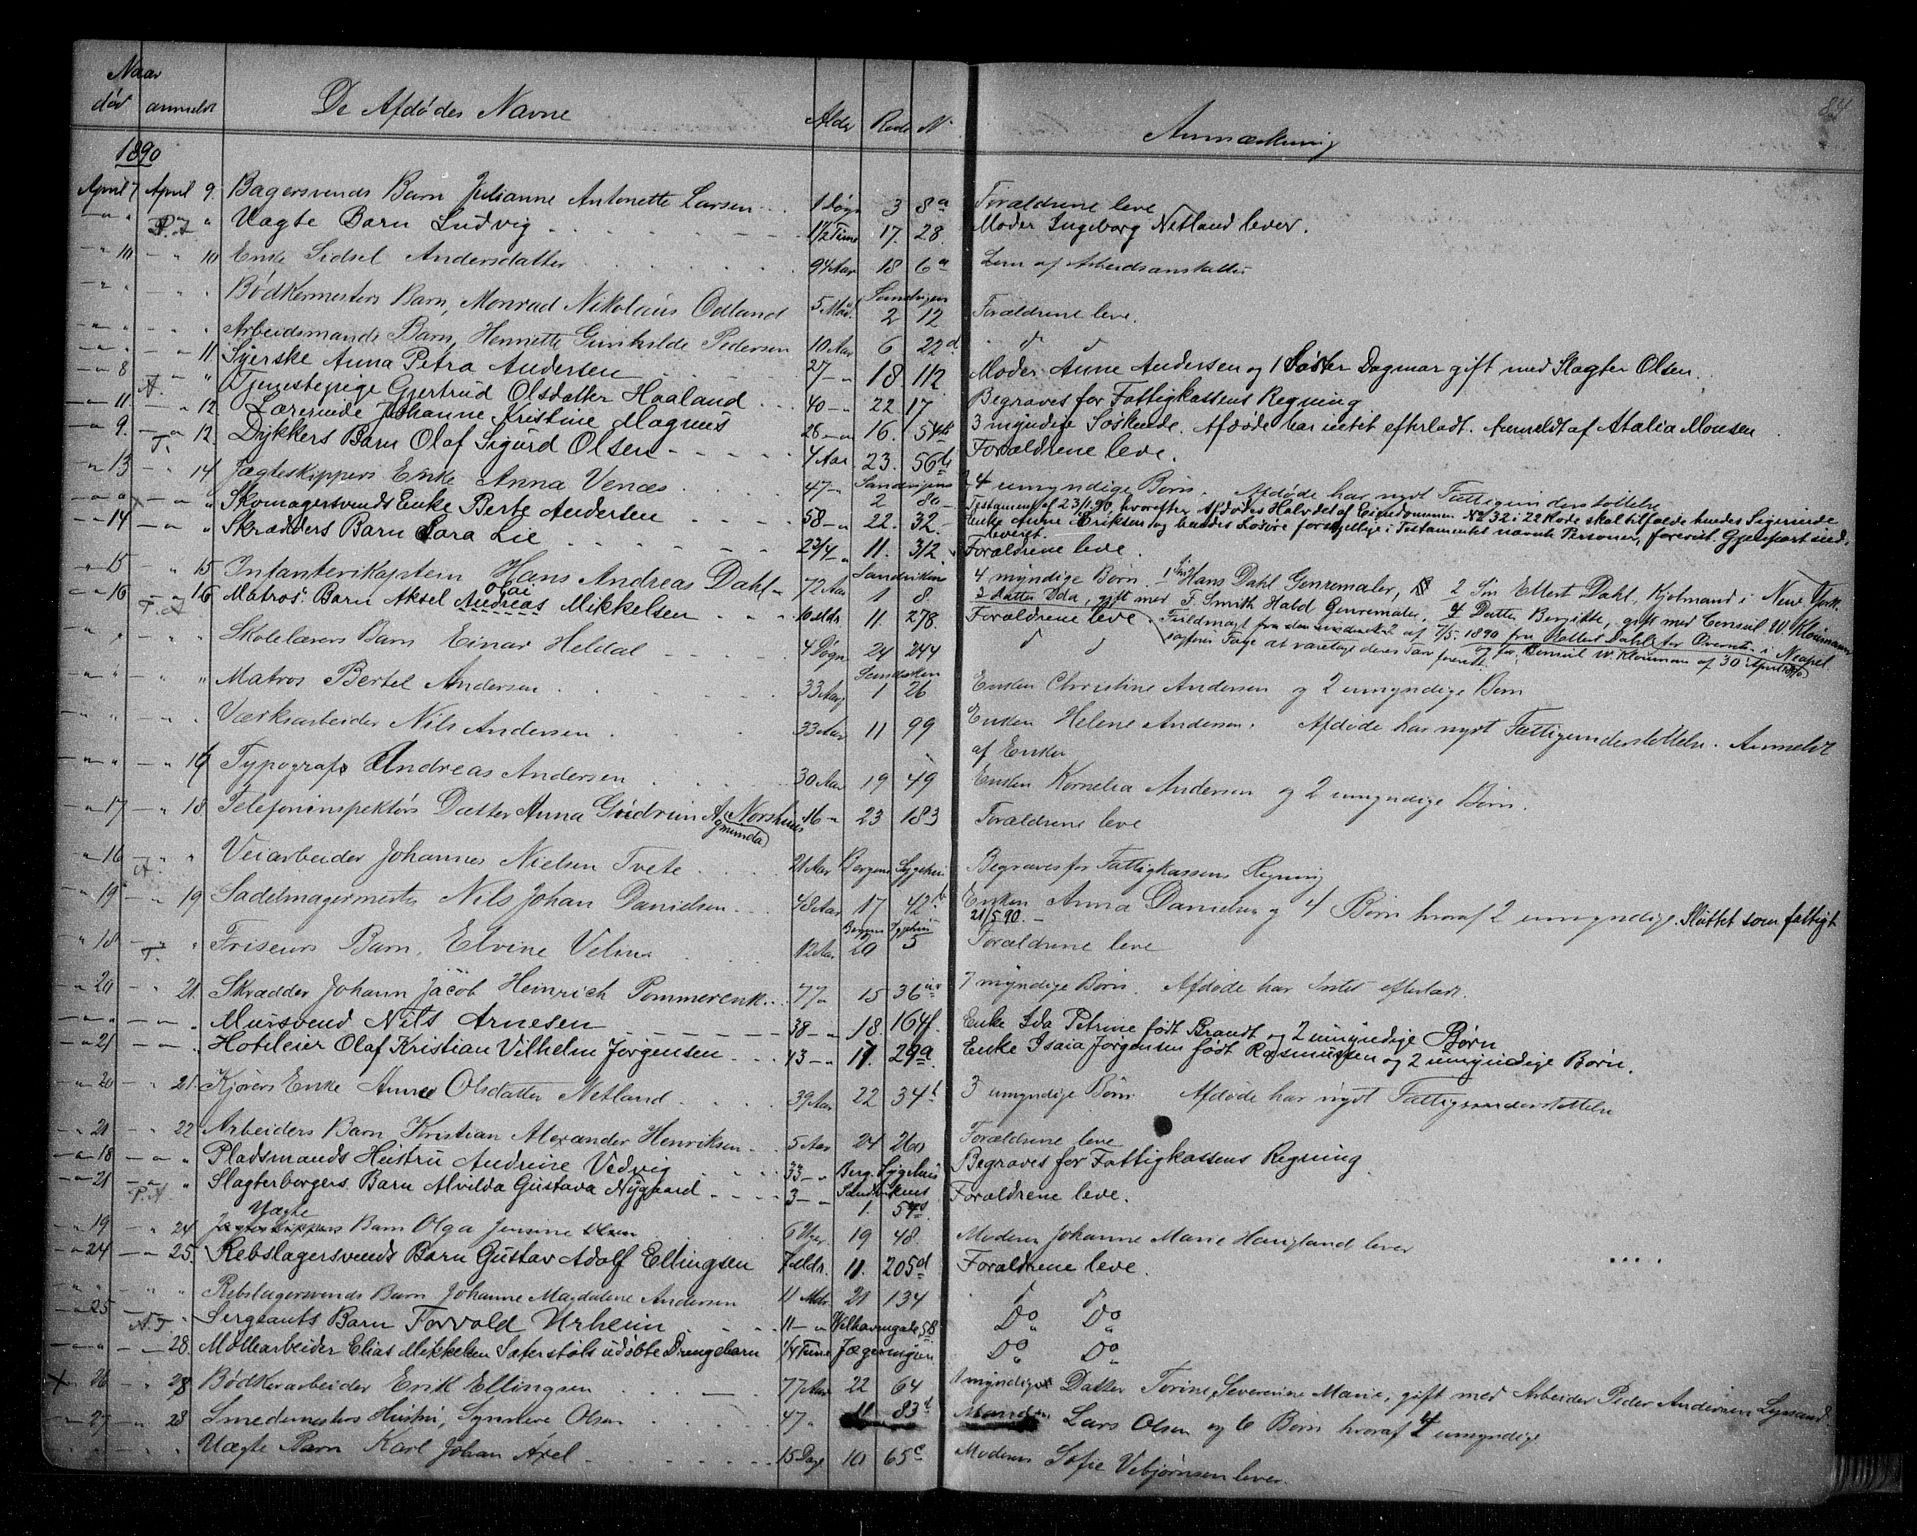 84
Naar
død anmeldt De Afdødes Navne Alder Rode N Anmærkning
1890
April 7 April 9. Bagersvends Barn Julianne Antonette Larsen 1 Døgn 3 8a Forældrene leve
" " Uægte Barn Ludvig 1½ Time 17. 28. Moder Ingeborg Netland lever.
" 10 " 10 Enke Sidsel Andersdatter 94 Aar 18 6a Lem af Arbeidsanstalten
" " " " Bødkermesters Barn, Monrad Nikolaus Odland 5 Mdr. Sandvigen 2 12 Forældrene leve.
" " " " Arbeidsmands Barn, Henriette Gunhilde Pedersen 10 Aar 6 22d do do
" " " 11 Syerske Anna Petra Andersen 27 " 18 112 Moder Anne Andersen og 1 Søster Dagmar gift med Slagter Olsen.
" 8 A. " " Tjenestepige Gjertrud Olsdatter Haaland 40 " 22 17 Begraves for Fattigkassens Regning
" 11 " 12 Lærerinde Johanne Kristine Magnus 28 " 16. 54 3 myndige Søskende. Afdøde har intet efterladt. Anmeldt af Atalia Monsen
" 9. T. " 12. Dykkers Barn Olaf Sigurd Olsen 4 Aar 23. 56b Forældrene leve.
" 13 " 14 Jægteskippers Enke Anna Venæs 47 " Sandvigens 2 80 4 umyndige Børn. Afdøde har nydt Fattigunderstøttelse
" " " " Skomagersvends Enke Berte Andersen 58 " 22. 32. Testament af 23/1 90, hvorefter Afdødes Halvdel af Eiendommen No 32 i 22 Rode skal tilfalde hendes Sigerinde
Enke Anne Eriksen og hendes Løsøre forskjellige i Testamentet nævnte Personer, forevist Gjenpart ind-
leveret.
" 14 " " Skrædders Barn Sara Lie 2 3/4 " 11. 312 Forældrene leve.
" 15 " 15 Infanterikaptein Hans Andreas Dahl 72 Aar Sandviken 1 8. 4 myndige Børn. 1 Søn Hans Dahl Genremaler, 2 Søn Ellert Dahl, Kjøbmand i New York.
3 Datter Ida, gift med F. Smith Hald Genremaler, 4 Datter Bergitte, gift med Consul W. Klouman
" 16 T. A " 16 Matros. Barn Aksel Olai Andreas Mikkelsen 10 Mdr. 11. 278. Forældrene leve Fuldmagt fra af 7/5 1890 fra Ellert Dahl for Oversti i Neapel.
sagfører Fage at varetage deres Tarv forevist og for Consul W. Klouman af 30 April 1890
" " " " Skolelærers Barn Einar Heldal 4 Døgn 24 244 do do
" " " " Matros Bertel Andersen 33 Aar Sandviken 1 26 Enken Christine Andersen og 2 umyndige Børn
" " " " Værksarbeider Nils Andersen 33 Aar 11 99 Enken Helene Andersen. Afdøde har nydt Fattigunderstøttelse. Anmeldt
af Enken
" " " 17 Typograf Andreas Andersen 30 Aar 19 49 Enken Kornelia Andersen og 2 umyndige Børn.
" 17 " 18 Telefoninspektørs Datter Anna Gudrun Agmunda Norshuus 16 " 23 183 Forældrene leve
" 16 A. " " Veiarbeider Johannes Nielsen Tvete 21 Aar Bergens Sygehus Begraves for Fattigkassens Regning
" 19 " 19 Sadelmagermester Nils Johan Danielsen 48 Aar 17 42b Enken Anna Danielsen og 4 Børn hvoraf 2 umyndige. Sluttet som fattigt
21/5 90. –
" 18 T. " " Friseurs Barn, Elvine Velure 12 Aar Bergens Sygehus 20 5 Forældrene leve
" 20 " 21. Skrædder Johann Jacob Heinrich Pommerenk 77 " 15 36 7 myndige Børn. Afdøde har Intet efterladt.
" " " " Mursvend Nils Arnesen 38 " 18. 164f. Enke Ida Petrine født Brandt og 2 umyndige Børn
" 21 " " Hotileier Olaf Kristian Vilhelm Jørgensen 43 " 17. 29a. Enke Isaia Jørgensen født Rasmussen og 2 umyndige Børn.
" 20 " 21 Kjørers Enke Anne Olsdatter Netland 39 Aar 22 34b 3 umyndige Børn Afdøde har nydt Fattigunderstøttelse
" 21 " 22 Arbeiders Barn Kristian Alexander Henriksen 5 Aar 24 260 Forældrene leve
" 18 " " Pladsmands Hustru Andrine Vedvig 33 " Berg. Sygehus Begraves for Fattigkassens Regning.
" 21 P. A. " " Slagterborgers Barn Alvilda Gustava Nygaard 3 " Sandvikens 1. 54d. Forældrene leve.
Uægte
" 19 " 24 Jægteskippers Barn Olga Jensine Olsen 6 Uger 19 48. Moderen Johanne Marie Haugland lever
" 24 " 25. Rebslagersvends Barn Gustav Adolf Ellingsen 7 Mdr. 11. 205d Forældrene leve.
" " " " Rebslagersvends Barn Johanne Magdalene Andersen 11 Mdr 21 134 do do
" 25 A. T " " Sergeants Barn Torvald Urheim 11 " " Vilhavngade 58 Do Do
" " " 28. Møllearbeider Elias Mikkelsen Sæterstøls udøbte Drengebarn 1/4 Time Jægermyren Do Do
× " 26 " 28 Bødkerarbeider Erik Ellingsen 77 Aar 22 64 1 myndig Datter Torine Severine Marie, gift med Arbeider Peder Andersen Lysand
" 27 " 28 Smedemesters Hustru, Synneve Olsen 47 " 11 83b Manden Lars Olsen og 6 Børn hvoraf 4 umyndige
" " " " Uægte Barn Karl Johan Axel 15 Dage 10 65c Moderen Sofie Vebjørnsen lever.